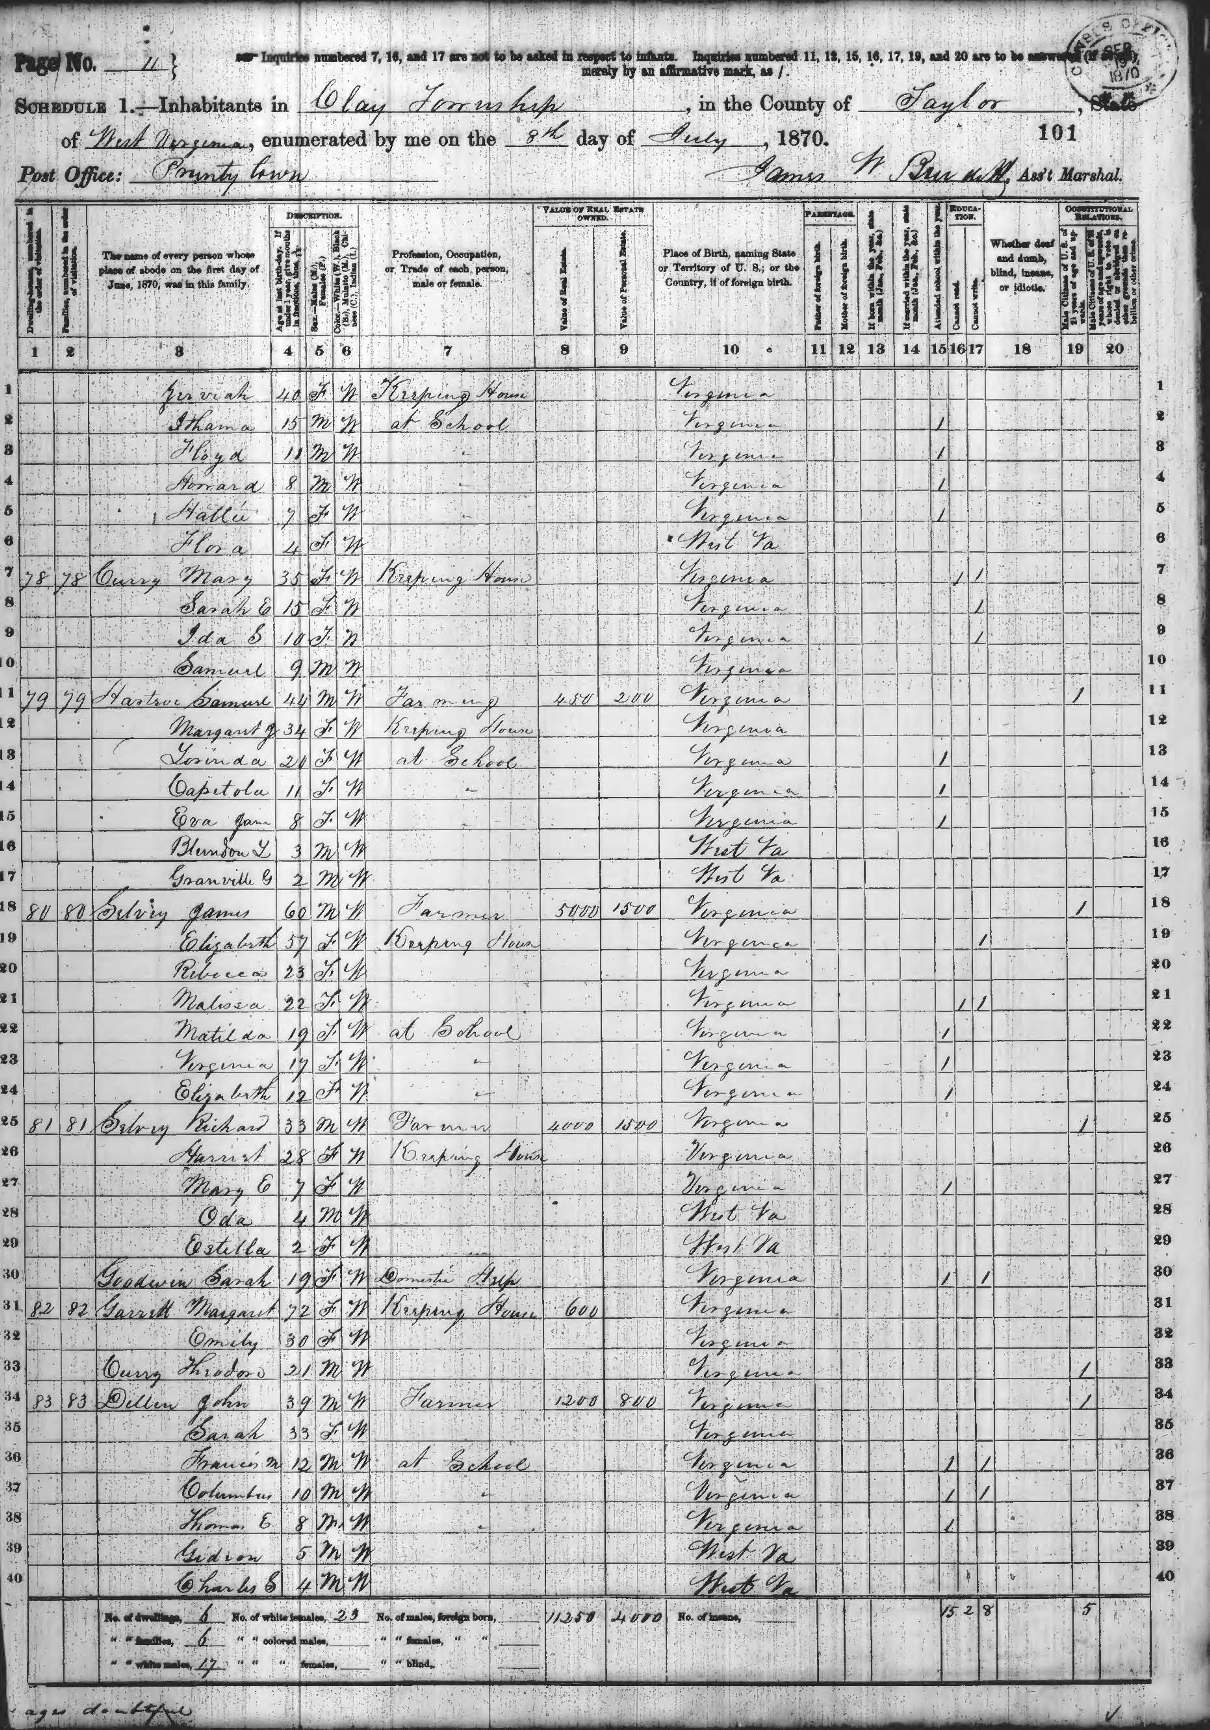 Page No. 11 } Inquiries numbered 7, 16, and 17 are not to be asked in respect to infants. Inquiries numbered 11, 12, 15, 16, 17, 19, and 20 are to be answered (if at all)
merely by an affirmative mark, as /.
SCHEDULE 1.—Inhabitants in Clay Township, in the County of Taylor, State
of West Virginia, enumerated by me on the 8th day of July, 1870. 101
Post Office: Prunty town James W Ass't Marshal.
DESCRIPTION. VALUE OF REAL ESTATE OWNED. PARENTAGE. EDUCATION. CONSTITUTIONAL RELATIONS.
Dwelling-houses, numbered in the order of visitation.
Families, numbered in the order of visitation.
The name of every person whose place of abode on the first day of June, 1870, was in this family.
Age at last birth-day. If under 1 year, give months in fractions, thus, 3/12
Sex.—Males (M.), Females (F.)
Color.—White (W.), Black (B.), Mulatto (M.), Chinese (C.), Indian (I.)
Profession, Occupation, or Trade of each person, male or female.
Value of Real Estate.
Value of Personal Estate.
Place of Birth, naming State or Territory of U. S.; or the Country, if of foreign birth.
Father of foreign birth.
Mother of foreign birth.
If born within the year, state month (Jan., Feb., &c.)
If married within the year, state month (Jan., Feb., &c.)
Attended school within the year.
Cannot read.
Cannot write.
Whether deaf and dumb, blind, insane, or idiotic.
Male Citizens of U. S. of 21 years of age and upwards.
Male Citizens of U. S. of 21 years of age and upwards, whose right to vote is denied or abridged on other grounds than rebellion or other crime.
1 2 3 4 5 6 7 8 9 10 11 12 13 14 15 16 17 18 19 20
1 40 F W Keeping House Virginia 1
2 Ithama 15 M W at School Virginia / 2
3 Floyd 11 M W " Virginia / 3
4 Howard 8 M W " Virginia / 4
5 Hattie 7 F W " Virginia / 5
6 Flora 4 F W West Va 6
7 78 78 Curry Mary 35 F W Keeping House Virginia / / 7
8 Sarah E 15 F W Virginia / 8
9 Ida S 10 F W Virginia / 9
10 Samuel 9 M W Virginia 10
11 79 79 Samuel 44 M W Farming 450 200 Virginia / 11
12 Margaret J 34 F W Keeping House Virginia 12
13 Lorinda 20 F W at School Virginia / 13
14 Capitola 11 F W " Virginia / 14
15 Eva Jane 8 F W " Virginia / 15
16 L 3 M W West Va 16
17 Granville G 2 M W West Va 17
18 80 80 Selvey James 60 M W Farmer 5000 1500 Virginia / 18
19 Elizabeth 57 F W Keeping House Virginia / 19
20 Rebecca 23 F W Virginia 20
21 Malissa 22 F W Virginia / / 21
22 Matilda 19 F W at School Virginia / 22
23 Virginia 17 F W " Virginia / 23
24 Elizabeth 12 F W " Virginia / 24
25 81 81 Selvey Richard 33 M W Farmer 4000 1500 Virginia / 25
26 Harriet 28 F W Keeping House Virginia 26
27 Mary E 7 F W Virginia / 27
28 Oda 4 M W West Va 28
29 Estella 2 F W West Va 29
30 Goodwin Sarah 19 F W Domestic Help Virginia / / 30
31 82 82 Garrett Margaret 72 F W Keeping House 600 Virginia 31
32 Emily 30 F W Virginia 32
33 Curry Theodore 21 M W Virginia / 33
34 83 83 Dellen John 39 M W Farmer 1200 800 Virginia / 34
35 Sarah 33 F W Virginia 35
36 Francis M 12 M W at School Virginia / / 36
37 Columbus 10 M W " Virginia / / 37
38 Thomas E 8 M W " Virginia / 38
39 Gideon 5 M W West Va 39
40 Charles S 4 M W West Va 40
No. of dwellings, 6 No. of white females, 23 No. of males, foreign born, 11250 4000 No. of insane, 15 2 8 5
" " families, 6 " " colored males, " " females, " "
" " white males, 17 " " " females, " " blind,
ages doubtful